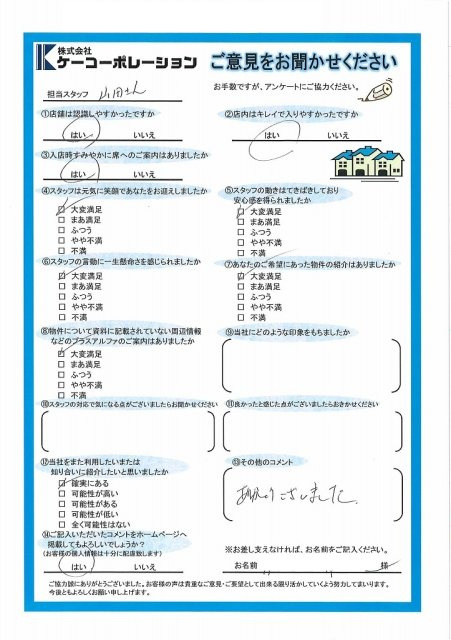 株式会社
ケーコーポレーション
ご意見をお聞かせください
お手数ですが、アンケートにご協力ください。
担当スタッフ 山田さん
①店舗は認識しやすかったですか
はい いいえ
②店内はキレイで入りやすかったですか
はい いいえ
③入店時すみやかに席へのご案内はありましたか
はい いいえ
④スタッフは元気に笑顔であなたをお迎えしましたか
□ 大変満足
□ まあ満足
□ ふつう
□ やや不満
□ 不満
⑤スタッフの動きはてきぱきしており
安心感を得られましたか
□ 大変満足
□ まあ満足
□ ふつう
□ やや不満
□ 不満
⑥スタッフの言動に一生懸命さを感じられましたか
□ 大変満足
□ まあ満足
□ ふつう
□ やや不満
□ 不満
⑦あなたのご希望にあった物件の紹介はありましたか
□ 大変満足
□ まあ満足
□ ふつう
□ やや不満
□ 不満
⑧物件について資料に記載されていない周辺情報
などのプラスアルファのご案内はありましたか
□ 大変満足
□ まあ満足
□ ふつう
□ やや不満
□ 不満
⑨当社にどのような印象をもちましたか
⑩スタッフの対応で気になる点がございましたらお聞かせください
⑪良かったと感じた点がございましたらおきかせください
⑫当社をまた利用したいまたは
知り合いに紹介したいと思いましたか
□ 確実にある
□ 可能性が高い
□ 可能性がある
□ 可能性が低い
□ 全く可能性はない
⑬その他のコメント
ありがとうございました
⑭ご記入いただいたコメントをホームページへ
掲載してもよろしいでしょうか?
(お客様の個人情報は十分に配慮致します)
はい いいえ
※お差し支えなければ、お名前をご記入ください。
お名前 様
ご協力誠にありがとうございました。お客様の声は貴重なご意見・ご要望として出来る限り活かしていくよう努力してまいります。
今後ともよろしくお願い申し上げます。